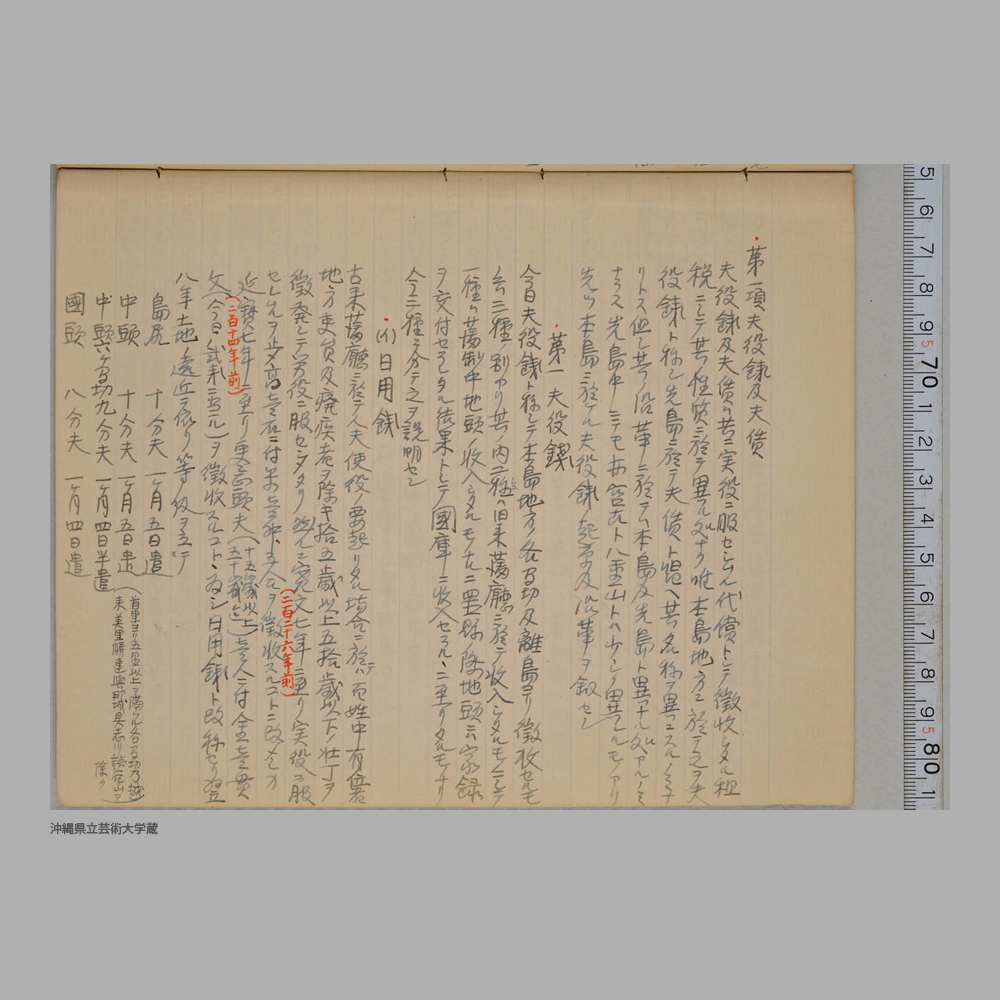 第一項夫役銭及夫債
夫役銭及夫債ハ共ニ実役ニ服セシムル代償トシテ徴収シタル租
税ニシテ其性質ニ於テ異ル処ナク唯本島地方ニ於テ之ヲ夫
役銭ト称シ先島ニ於テ夫債ト唱ヘ其名称ヲ異ニスルノミナ
リトス但シ其ノ沿革ニ於テハ本島及先島ト異ナル処アルノミ
ナラス先島中ニテモ宮古ト八重山トハ少シク異ナルモノアリ
先ツ本島ニ於ケル夫役銭起原及沿革ヲ叙セン
第一 夫役銭
今日夫役銭ト称シテ本島地方ノ各間切及離島ヨリ徴収セルモ
ノニ二種ノ別アリ其ノ内一種ハ旧来藩庁ニ於テ収入シタルモノニシテ
一種ハ藩制中地頭ノ収入シタルモノナルニ置県ノ際地頭ニハ家録
ヲ交付セラレタル結果トシテ國庫ニ収入セラルヽニ至リタルモノナリ
今二種ヲ分チテ之ヲ説明セン
(イ)日用銭
古来藩庁ニ於テハ夫使役ノ要起リタル場合ニ於テハ百姓中有禄者
地方吏員及癈疾者ヲ除キ拾五歳以上五拾歳以下ノ壮丁ヲ
徴発シテ労役ニ服セシメタリ然ルニ寛文七年ニ至リ実役ニ服
(二百二十六年前)
セシムルヲ止メ高壱石ニ付米壱升五合ヲ徴収スルコトニ改メシカ
延宝七年ニ至リ更ニ頭夫(十五歳以上五十歳迄)壱人ニ付金壱貫
(二百十四年前)
文(今日ノ弐銭ニ当ル)ヲ徴収スルコトヽ為シ日用銭ト改称セリ翌
八年土地ノ遠近ニ依リ等級ヲ立テ
島尻 十分夫 一ヶ月五日遣
中頭 十分夫 一ヶ月五日遣
(首里ヨリ五里以上ヲ隔ツル各間切乃越
来美里勝連與那城具志川読谷山ヲ
除ク)
中頭六ヶ間切九分夫 一ヶ月四日半遣
國頭 八分夫 一ヶ月四日遣
沖縄県立芸術大学蔵